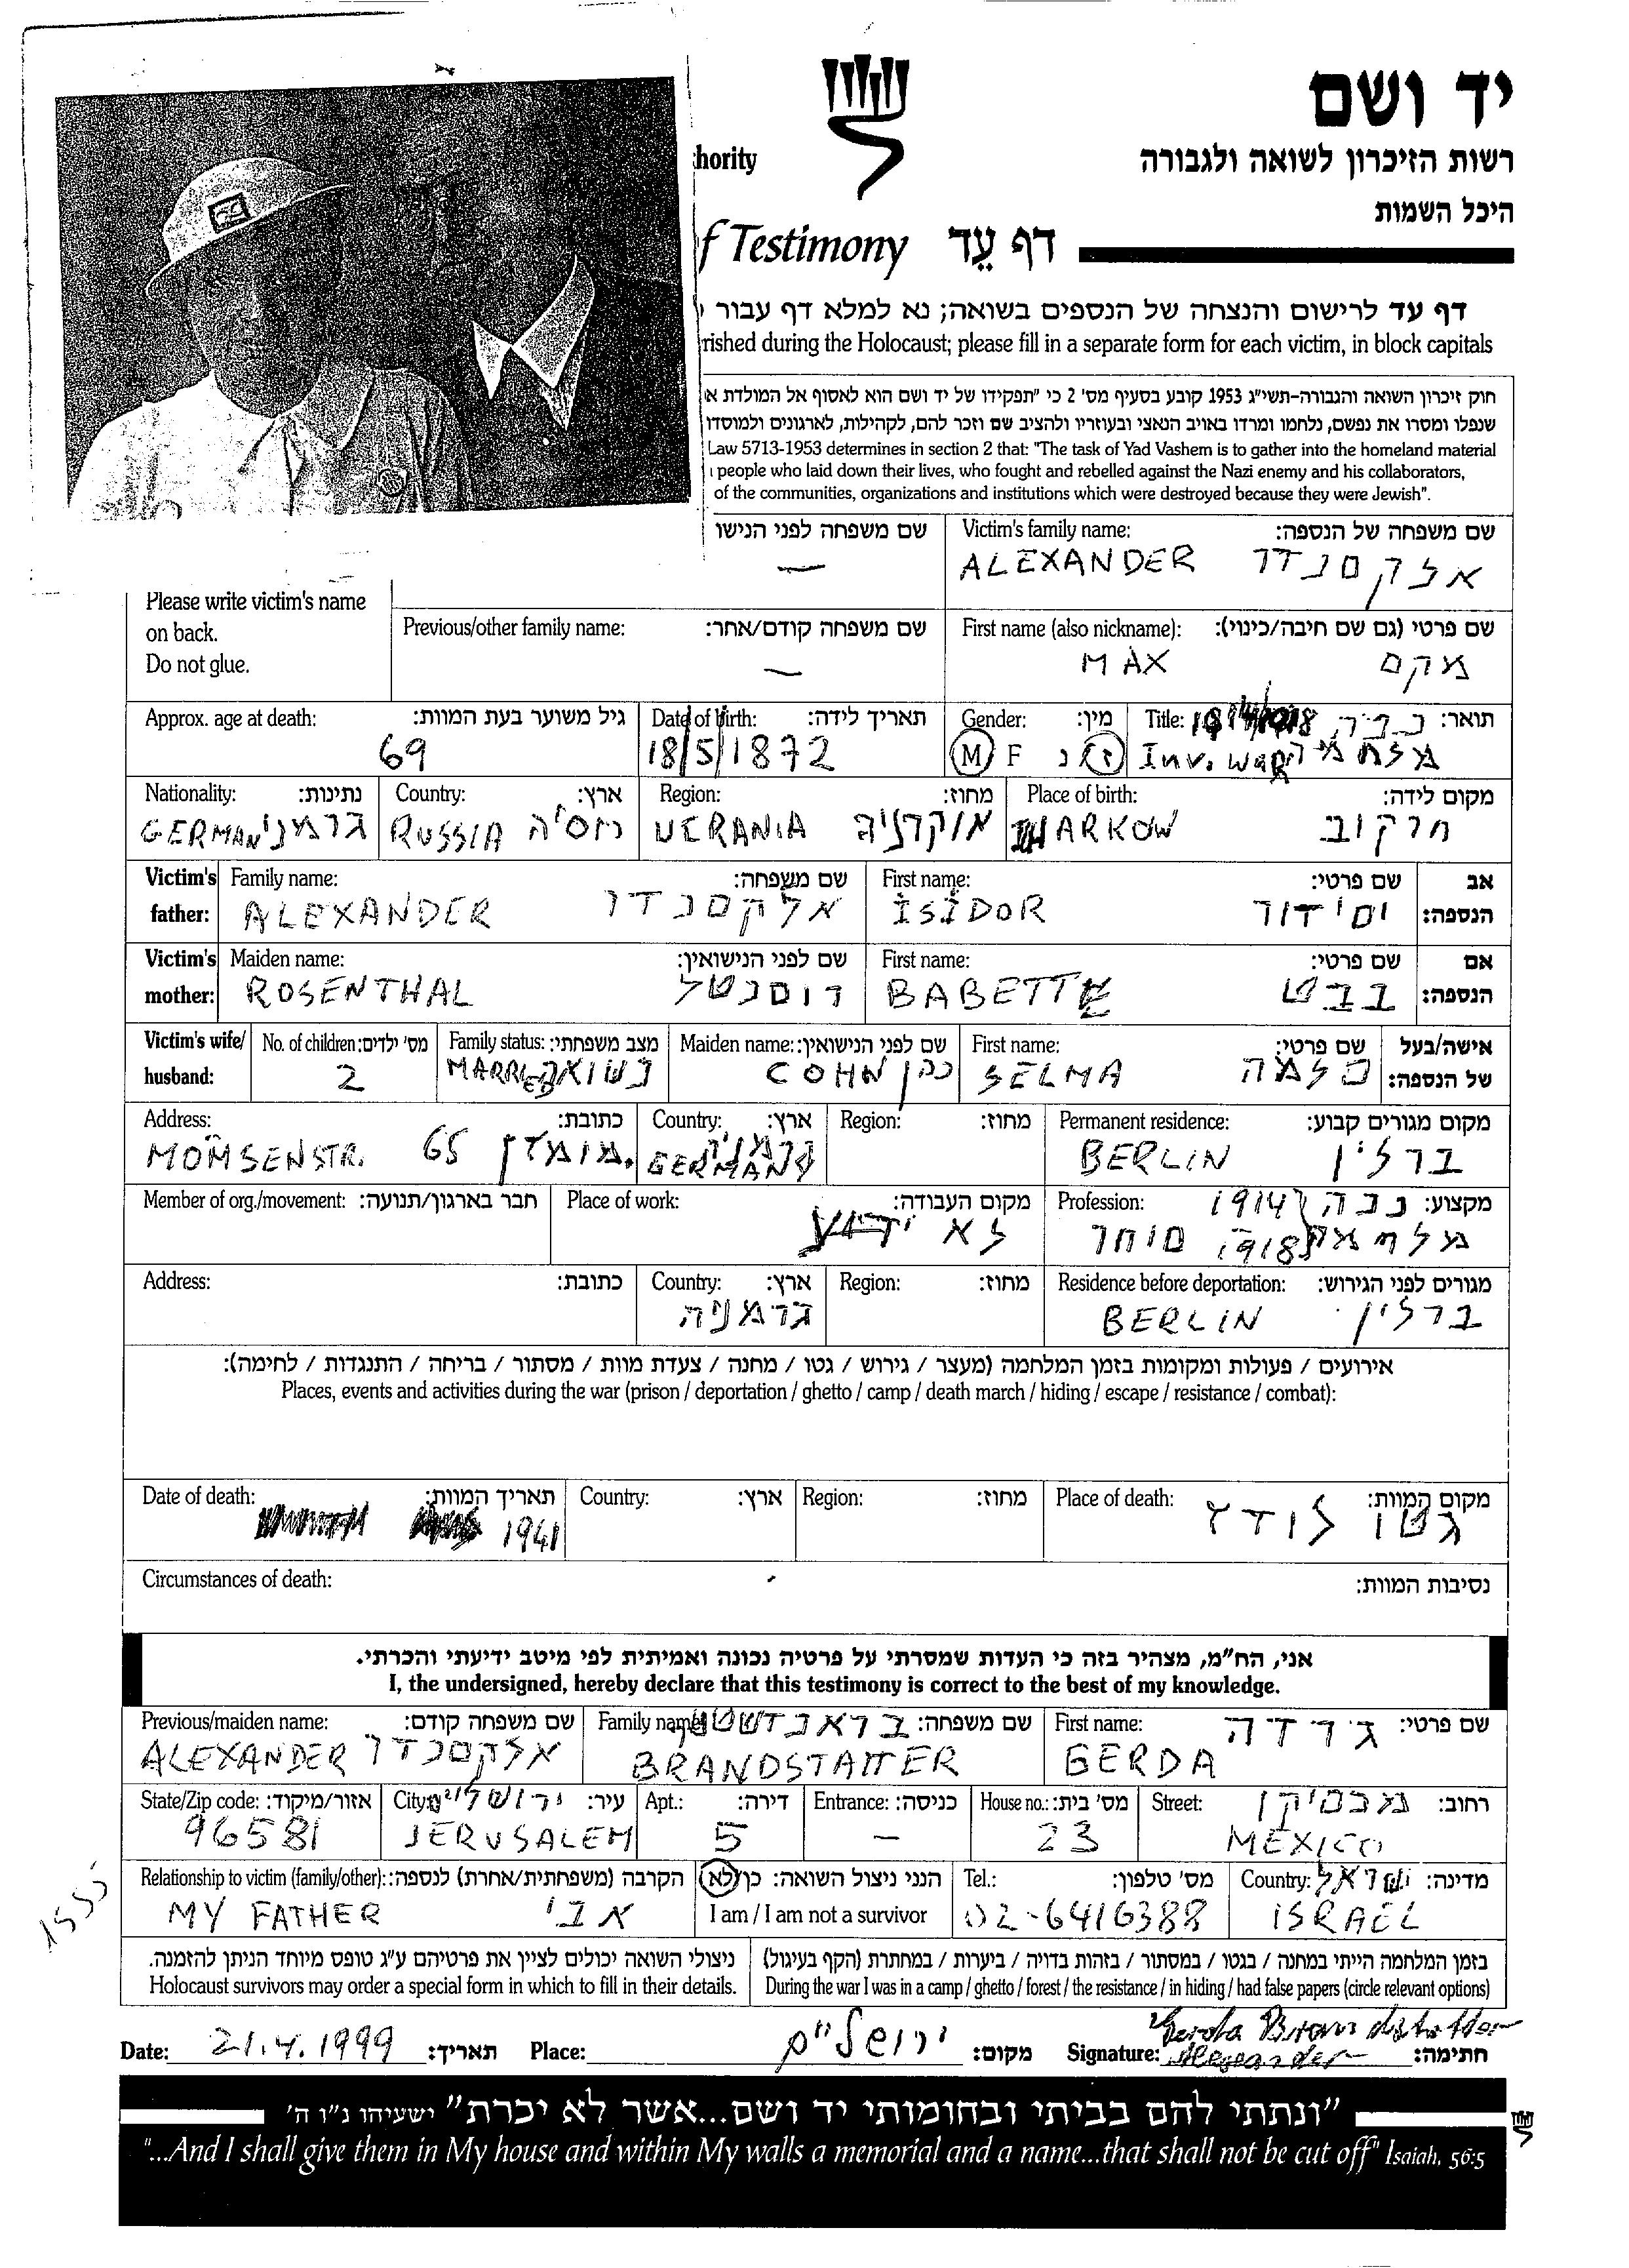 יד ושם
hority
רשות הזיכרון לשואה ולגבורה
היכל השמות
f Testimony דף עֵד
דף עד לרישום והנצחה של הנספים בשואה; נא למלא דף עבור
rished during the Holocaust; please fill in a separate form for each victim, in block capitals
חוק זיכרון השואה והגבורה-תשי"ג 1953 קובע בסעיף מס' 2 כי "תפקידו של יד ושם הוא לאסוף אל המולדת א
שנפלו ומסרו את נפשם, נלחמו ומרדו באויב הנאצי ובעוזריו ולהציב שם וזכר להם, לקהילות, לארגונים ולמוסדו
Law 5713-1953 determines in section 2 that: "The task of Yad Vashem is to gather into the homeland material
people who laid down their lives, who fought and rebelled against the Nazi enemy and his collaborators,
of the communities, organizations and institutions which were destroyed because they were Jewish".
שם משפחה לפני הנישו Victim's family name: שם משפחה של הנספה:
— ALEXANDER אלקסנדר
Please write victim's name
on back.
Do not glue.
Previous/other family name: שם משפחה קודם/אחר: First name (also nickname): שם פרטי (גם שם חיבה/כינוי):
— MAX מקס
Approx. age at death: גיל משוער בעת המוות: Date of birth: תאריך לידה: Gender: מין: Title: תואר: נכה
69 18/5/1872 M F ז נ Inv. war מלחמה
Nationality: נתינות: Country: ארץ: Region: מחוז: Place of birth: מקום לידה:
GERMAN גרמני RUSSIA רוסיה UCRANIA אוקרניה HARKOW חרקוב
Victim's father: Family name: שם משפחה: First name: שם פרטי: אב הנספה:
ALEXANDER אלקסנדר ISIDOR יסידור
Victim's mother: Maiden name: שם לפני הנישואין: First name: שם פרטי: אם הנספה:
ROSENTHAL רוסנטל BABETTE בבט
Victim's wife/ husband: No. of children: מס' ילדים: Family status: מצב משפחתי: Maiden name: שם לפני הנישואין: First name: שם פרטי: אישה/בעל של הנספה:
2 MARRIED נשוא COHN כהן SELMA סלמה
Address: כתובת: Country: ארץ: Region: מחוז: Permanent residence: מקום מגורים קבוע:
MOMSENSTR. 65 מומזן GERMANY גרמניה BERLIN ברלין
Member of org./movement: חבר בארגון/תנועה: Place of work: מקום העבודה: Profession: מקצוע: נכה 1914
לא ידוע מלחמה 1918 סוחר
Address: כתובת: Country: ארץ: Region: מחוז: Residence before deportation: מגורים לפני הגירוש:
גרמניה BERLIN ברלין
אירועים / פעולות ומקומות בזמן המלחמה (מעצר / גירוש / גטו / מחנה / צעדת מוות / מסתור / בריחה / התנגדות / לחימה):
Places, events and activities during the war (prison / deportation / ghetto / camp / death march / hiding / escape / resistance / combat):
Date of death: תאריך המוות: Country: ארץ: Region: מחוז: Place of death: מקום המוות:
1941 גטו לודץ
Circumstances of death: נסיבות המוות:
אני, הח"מ, מצהיר בזה כי העדות שמסרתי על פרטיה נכונה ואמיתית לפי מיטב ידיעתי והכרתי.
I, the undersigned, hereby declare that this testimony is correct to the best of my knowledge.
Previous/maiden name: שם משפחה קודם: Family name: שם משפחה: First name: שם פרטי: גרדה
ALEXANDER אלקסנדר BRANDSTATTER GERDA
State/Zip code: אזור/מיקוד: City: עיר: ירושלים Apt.: דירה: Entrance: כניסה: House no.: מס' בית: Street: רחוב: מכסיקו
96581 JERUSALEM 5 — 23 MEXICO
Relationship to victim (family/other): הקרבה (משפחתית/אחרת) לנספה: הנני ניצול השואה: כן/לא Tel.: מס' טלפון: Country: מדינה: ישראל
MY FATHER אבי I am / I am not a survivor 02-6416388 ISRAEL
ניצולי השואה יכולים לציין את פרטיהם ע"ג טופס מיוחד הניתן להזמנה. בזמן המלחמה הייתי במחנה / בגטו / במסתור / בזהות בדויה / ביערות / במחתרת (הקף בעיגול)
Holocaust survivors may order a special form in which to fill in their details. During the war I was in a camp / ghetto / forest / the resistance / in hiding / had false papers (circle relevant options)
Date: 21.4.1999 תאריך: Place: ירושלים מקום: Signature: Gerda Brandstatter Alexander חתימה:
"ונתתי להם בביתי ובחומותי יד ושם...אשר לא יכרת" ישעיהו נ"ו ה'
"...And I shall give them in My house and within My walls a memorial and a name...that shall not be cut off" Isaiah, 56:5